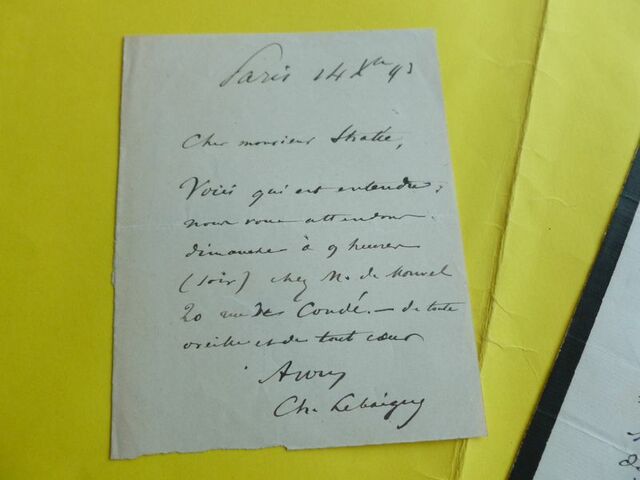 Paris 14 Xbre 93
Cher monsieur
Voici qui est entendu :
nous vous attendons
dimanche à 9 heures
(soir) chez M. de Nouvel
20 rue de Condé. — de toute
oreille et de tout cœur
Ch. Lebaigue